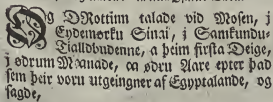 OG DROttinn talade vid Mosen, j
Eydemørku Sinai, j Samkundu-
Tialldbudenne, a þeim firsta Deige,
j ødrum Maanade, aa ødru Aare epter þad
þeir voru utgeingner af Egyptalande, og
sagde,